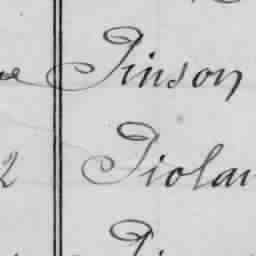 Pinson
2 Piolan